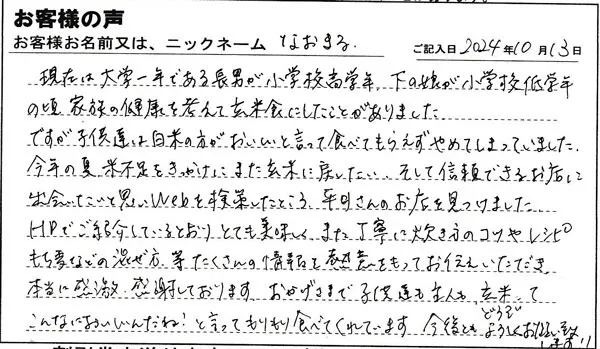 お客様の声
お客様お名前又は、ニックネーム なおまる ご記入日 2024年10月13日
現在は大学一年である長男が小学校高学年、下の娘が小学校低学年
の頃 家族の健康を考えて玄米食にしたことがありました
ですが子供達は白米の方がおいしいと言って食べてもらえずやめてしまっていました.
今年の夏 米不足をきっかけにまた玄米に戻したい、そして信頼できるお店に
出会いたいと思いWebを検索したところ、 さんのお店を見つけました
HPでご紹介しているとおりとても美味しく また丁寧に炊き方のコツやレシピ
もち麦などの混ぜ方 等 たくさんの情報を熱意をもってお伝えいただき
本当に感激 感謝しております おかげさまで子供達も主人も、玄米って
こんなにおいしいんだね!と言ってもりもり食べてくれています 今後ともどうぞ
よろしくお願い致
します!!